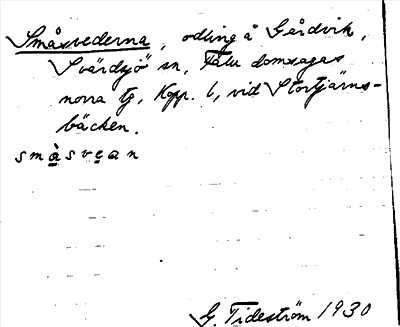 Småsvederna, odling å Gårdvik,
Svärdsjö sn, Falu domsagas
norra tg, Kopp. l, vid Stortjärns-
bäcken.
småsvean
G. Tideström 1930